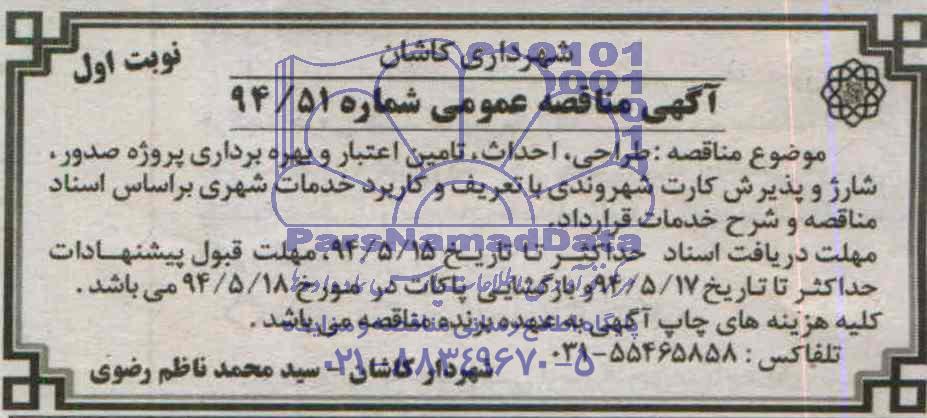 شهرداری کاشان
نوبت اول
آگهی مناقصه عمومی شماره ۹۴/۵۱
موضوع مناقصه : طراحی، احداث، تامین اعتبار و بهره برداری پروژه صدور،
شارژ و پذیرش کارت شهروندی با تعریف و کاربرد خدمات شهری براساس اسناد
مناقصه و شرح خدمات قرارداد.
مهلت دریافت اسناد حداکثر تا تاریخ ۹۴/۵/۱۵، مهلت قبول پیشنهادات
حداکثر تا تاریخ ۹۴/۵/۱۷ و بازگشایی پاکات در مورخ ۹۴/۵/۱۸ می باشد.
کلیه هزینه های چاپ آگهی به عهده برنده مناقصه می باشد.
تلفاکس : ۵۵۴۶۵۸۵۸-۰۳۱
شهردار کاشان - سید محمد ناظم رضوی
ParsNamadData
پایگاه اطلاع رسانی مناقصه و مزایده
۰۲۱-۸۸۳۴۹۶۷۰-۵